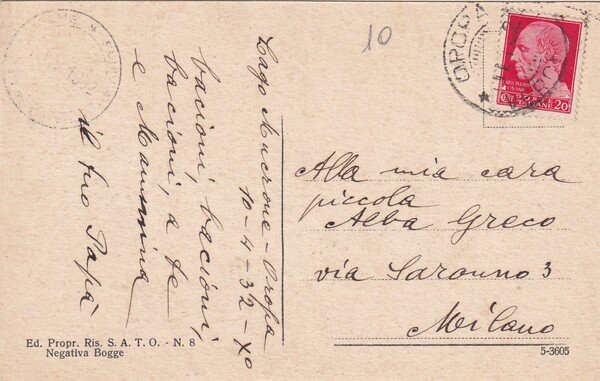 10
Lago Mucrone - Oropa
10-4-32-X°
bacioni, bacioni,
bacioni, a te
e Mammina
il tuo Papà
Alla mia cara
piccola
Alba Greco
via Saronno 3
Milano
OROPA
20
Ed. Propr. Ris. S. A. T. O. - N. 8
Negativa Bogge
5-3605